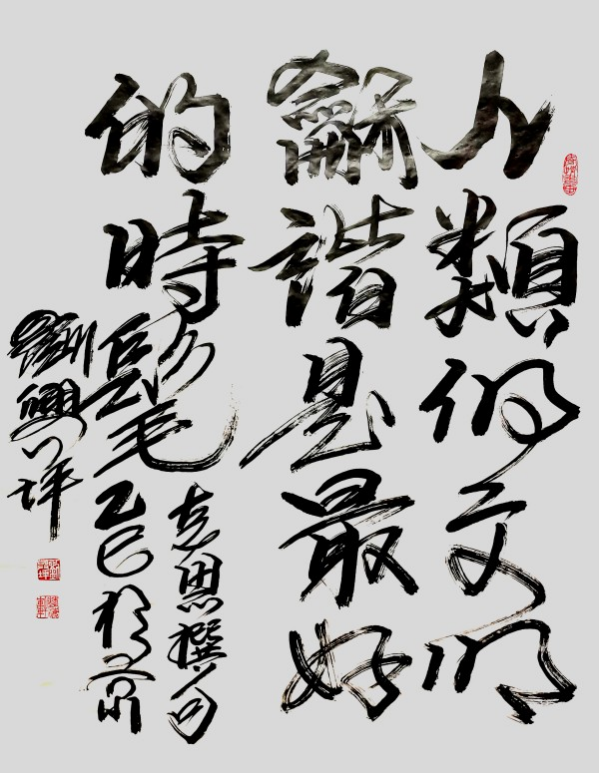 人類的文明
龢諧是最好
的時髦
思撰句
乙巳於京
劉興